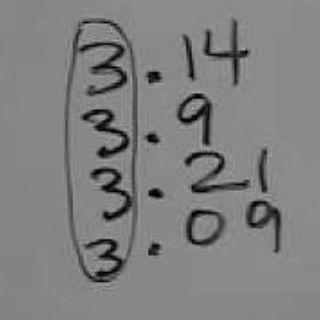 3.14
3.9
3.21
3.09